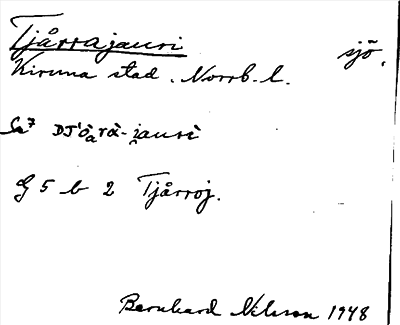 Tjårrajauri sjö.
Kiruna stad. Norrb. l.
DJ'ȯₐrȧ-jauri
G 5 b 2 Tjårroj.
Bernhard Nilsson 1948